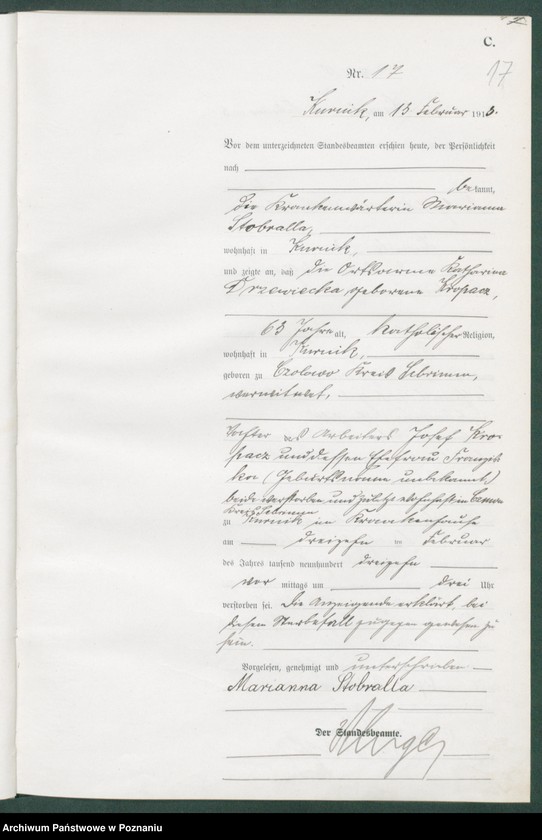 C.
Nr. 17
17
Kurnik, am 13 Februar 1913.
Vor dem unterzeichneten Standesbeamten erschien heute, der Persönlichkeit
nach
bekannt,
die Krankenwärterin Marianna
Stobralla,
wohnhaft in Kurnik,
und zeigte an, daß die Ortsarme Katharina
Drzewiecka, geborene Kropacz,
63 Jahre alt, katholischer Religion,
wohnhaft in Kurnik,
geboren zu Kreis Schrimm,
verwitwet,
Tochter des Arbeiters Josef Kro-
pacz und dessen Ehefrau Franzis-
ka (Geburtsname unbekannt)
beide verstorben und zuletzt wohnhaft in
Kreis Schrimm
zu Kurnik im Krankenhause
am dreizehn ten Februar
des Jahres tausend neunhundert dreizehn
vor mittags um drei Uhr
verstorben sei. Die Anzeigende erklärt, bei
diesem Sterbefall zugegen gewesen zu
sein.
Vorgelesen, genehmigt und unterschrieben
Marianna Stobralla
Der Standesbeamte.
Archiwum Państwowe w Poznaniu